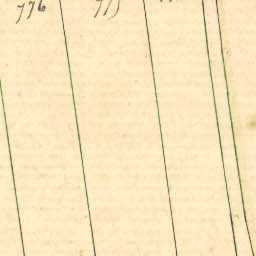 776 775